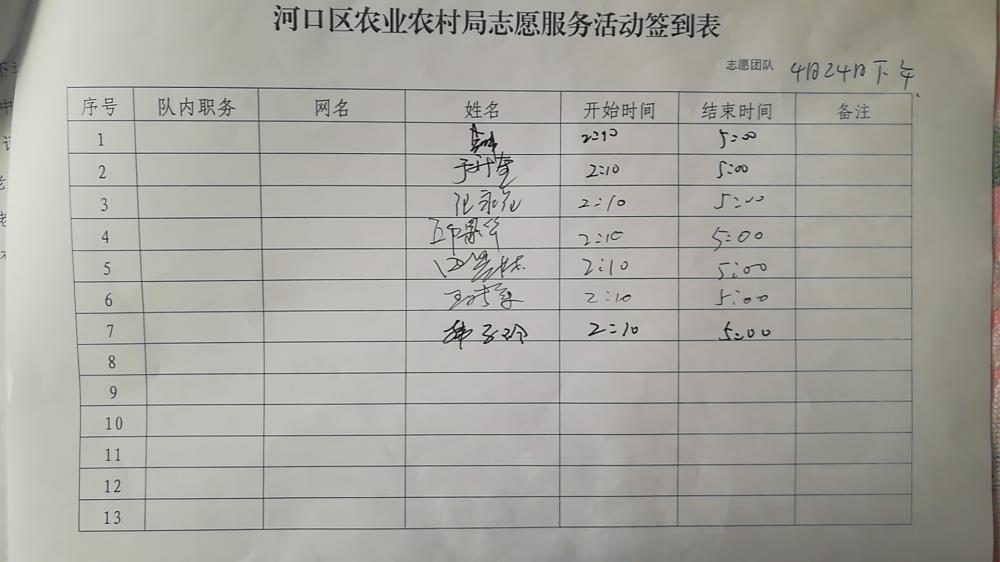 河口区农业农村局志愿服务活动签到表
志愿团队 4月24日下午
序号 队内职务 网名 姓名 开始时间 结束时间 备注
1 2:10 5:00
2 2:10 5:00
3 2:10 5:00
4 2:10 5:00
5 2:10 5:00
6 2:10 5:00
7 2:10 5:00
8
9
10
11
12
13